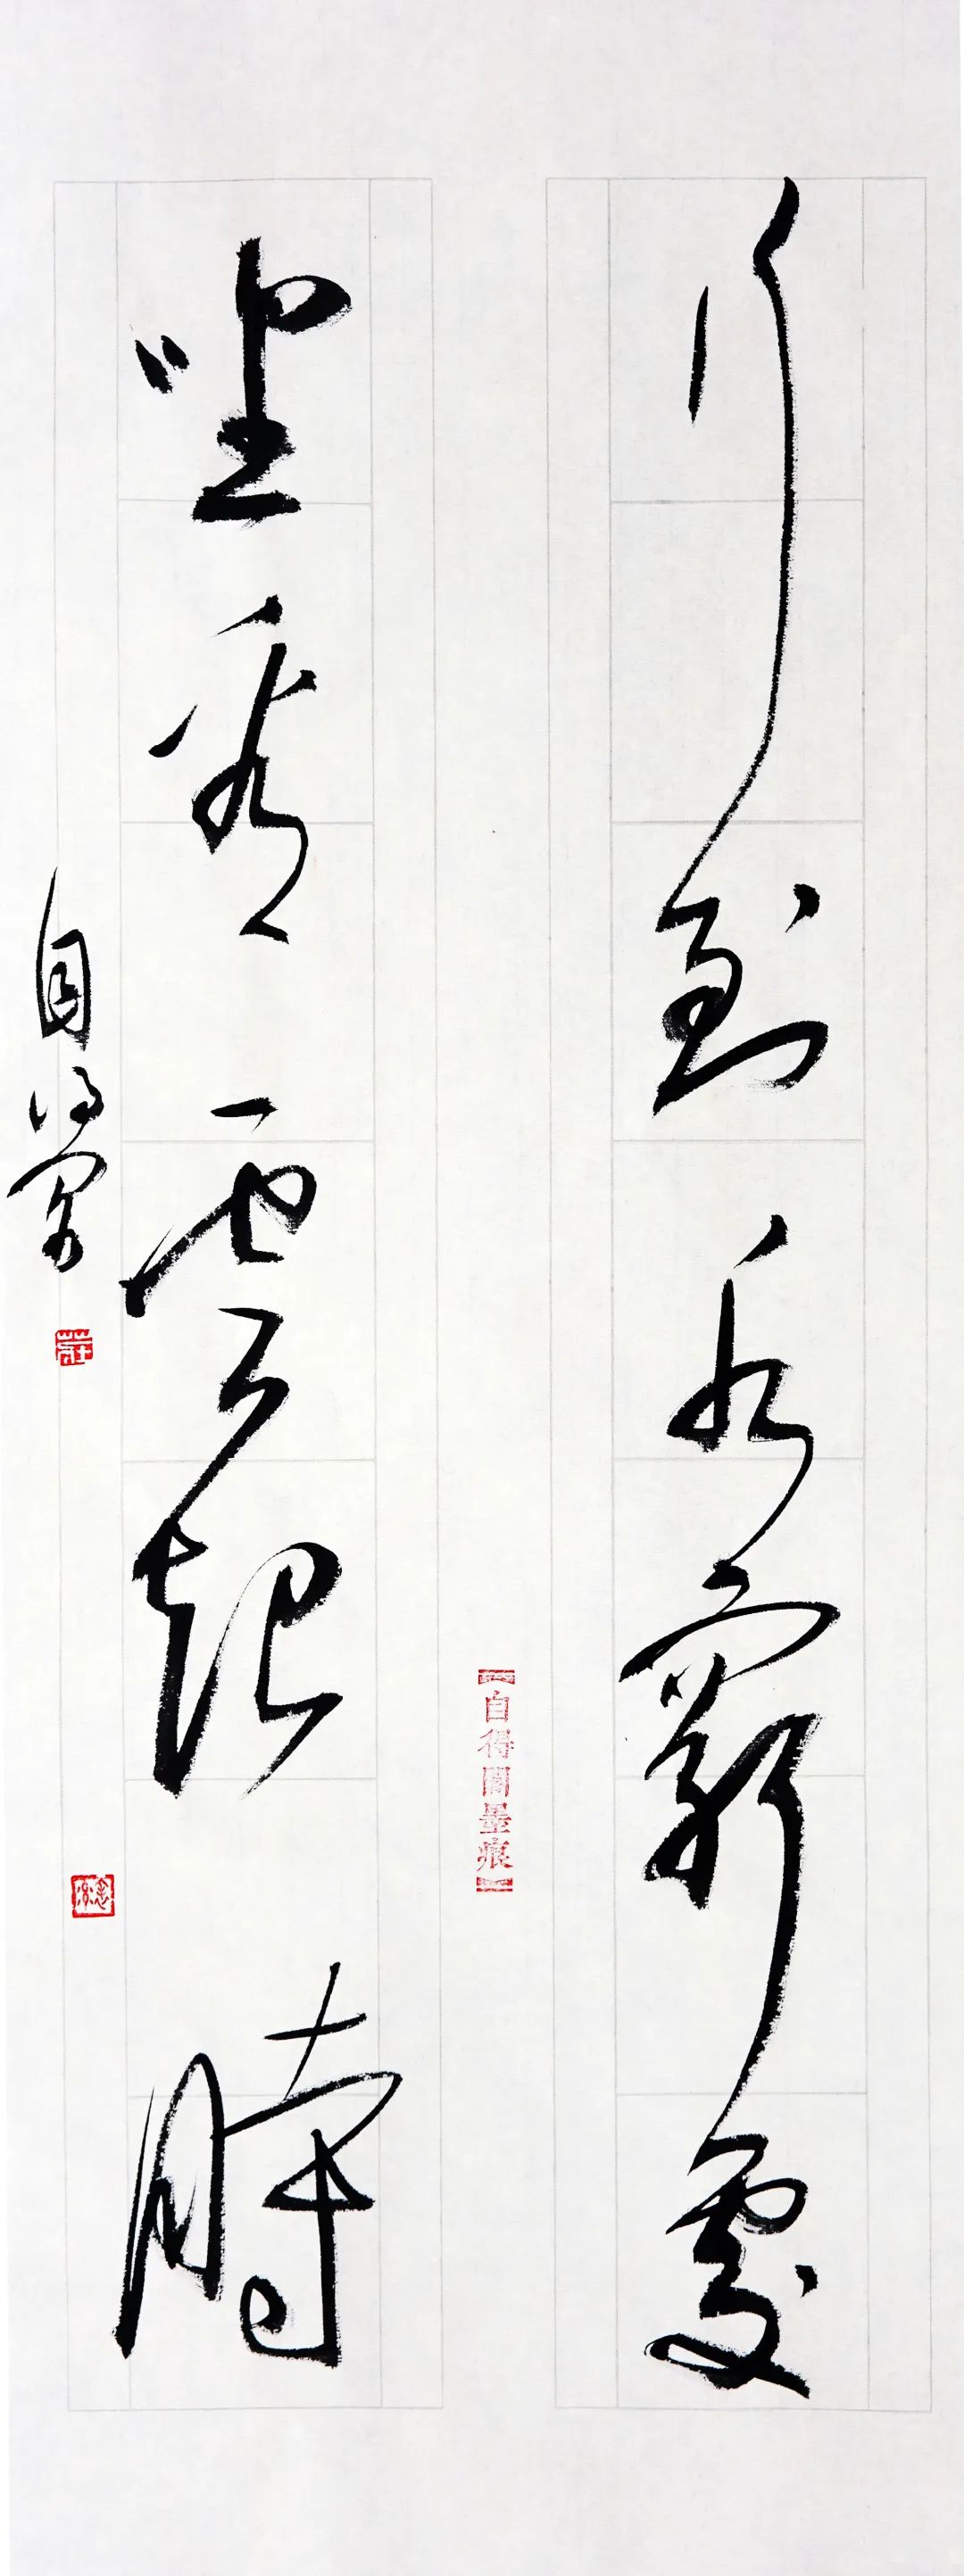 行到水窮處
坐看雲起時
自得客
自得閣墨痕
莊